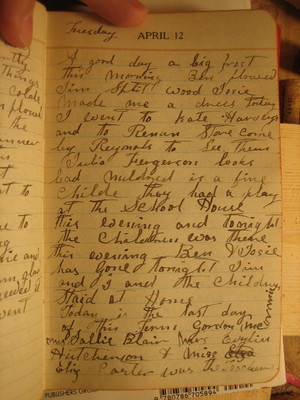 Tuesday
APRIL 12
A good day a big frost
this morning Ben plowed
Jim Split wood Josie
made me a dress today
I went to Kate
and to Penan Store come
by Reynols to See them
Julia Ferguson looks
bad Mildred is a fine
Childe they had a play
at the School House
this evening and tonight
the Children was there
this evening Ben & Josie
has gone tonight Jim
and I and the Children
Staid at Home
Today is the last day
of this Term Gordon
mrs Sallie Blair Mrs
Hutchenson & Miss
Eliz Carter was
things
to
went
PUBLISHERS GRO
9 780786 705894